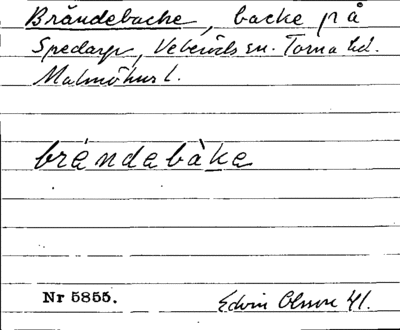 Brändebacke, backe på
Spedarp, Veberöds sn. Torna hd.
Malmöhus l.
brändabàka
Nr 5855.
Edvin Olsson 41.